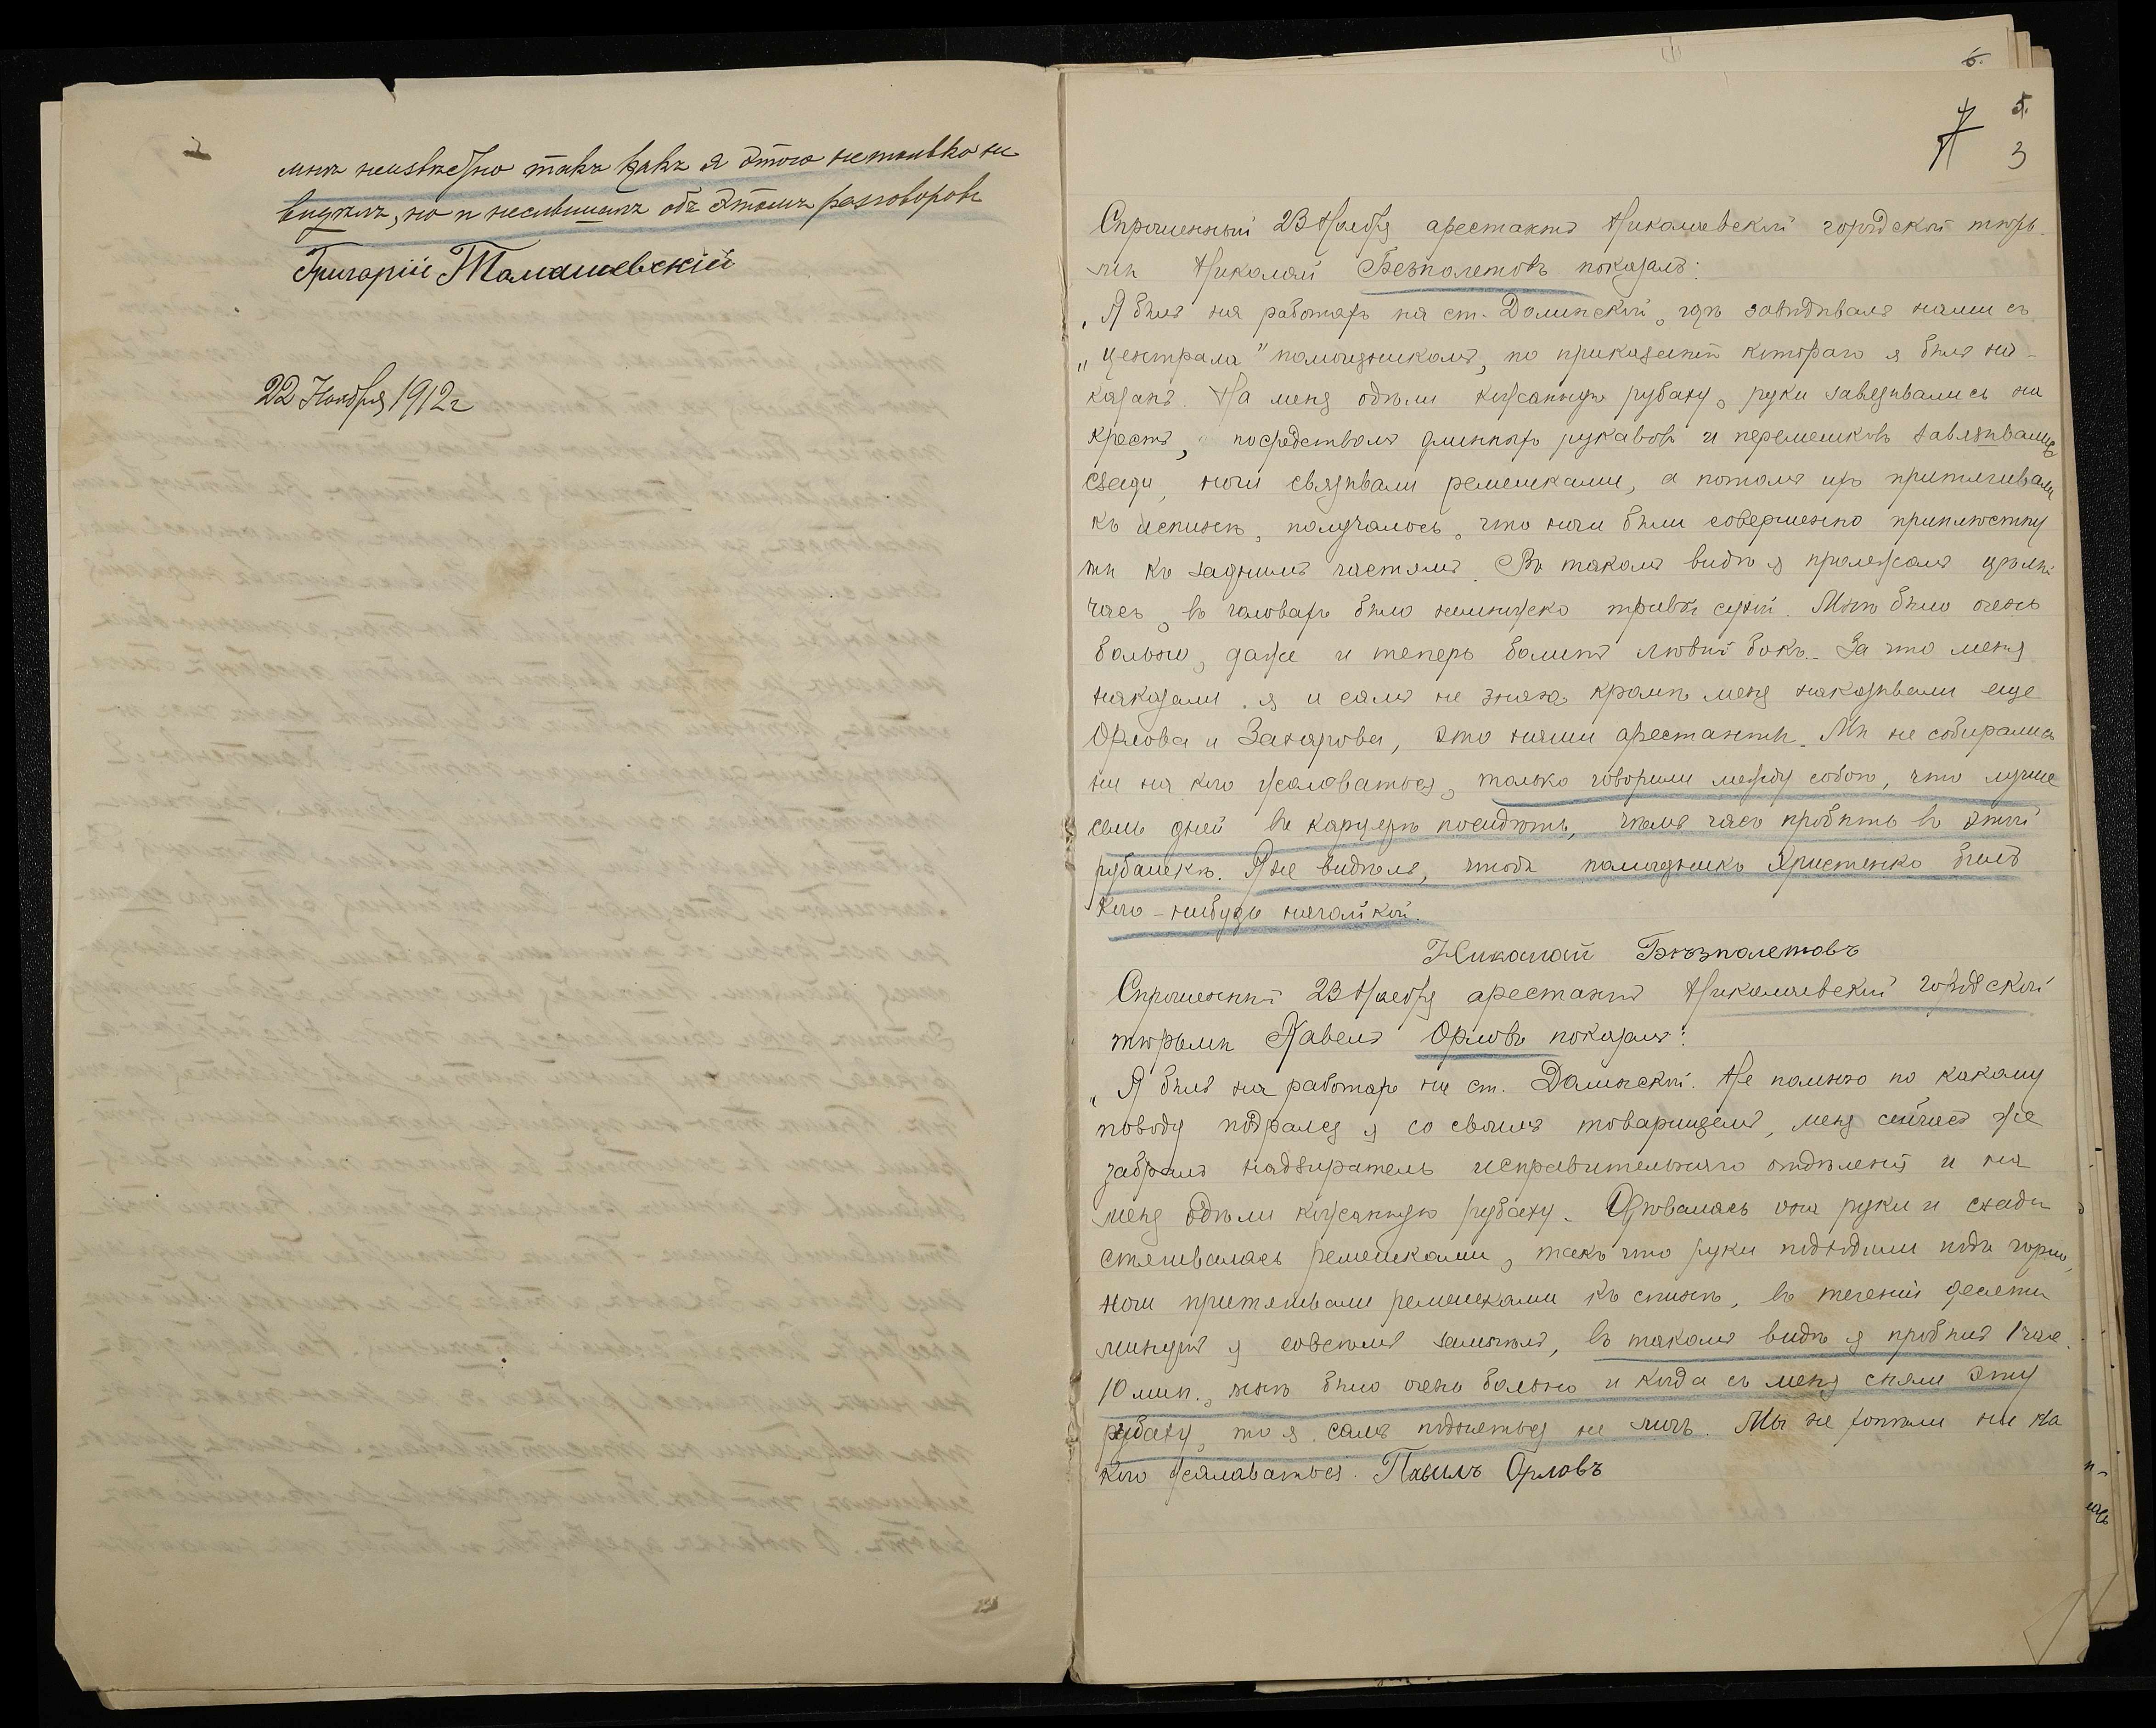 мнѣ неизвѣстно такъ какъ я этого нетолько не
видѣлъ, но и неслышалъ объ этомъ разговоровъ
Григорій Томашевскій
22 Ноября 1912 г
6.
5.
3
Спрошенный 23 Ноября арестантъ Николаевской городской тюрь-
мы Николай Безполетовъ показалъ:
„Я былъ на работахъ на ст. Долинской, гдѣ завѣдывалъ нами съ
„централа" помощникомъ, по приказанію котораго я былъ на-
казанъ. На меня одѣли кожанную рубаху, руки завязывались на
крестъ, посредствомъ длинныхъ рукавовъ и перемешковъ завязывались
сзади, ноги связывали ремешками, а потомъ ихъ притягивали
къ спинѣ, получалось, что ноги были совершенно приплюстну
ты къ заднимъ частямъ. Въ такомъ видѣ я пролежалъ цѣлый
часъ, въ головахъ было немножко травы сухой. Мнѣ было очень
больно, даже и теперь болитъ лѣвый бокъ. За что меня
наказали я и самъ не знаю, кромѣ меня наказывали еще
Орлова и Захарова, это наши арестанты. Мы не собирались
ни на кого жаловаться, только говорили между собою, что лучше
семь дней въ карцерѣ посидѣть, чѣмъ часъ пробыть въ этой
рубашкѣ. Я не видѣлъ, чтобъ помощникъ Христенко билъ
кого-нибудь нагайкой.
Николай Безполетовъ
Спрошенный 23 Ноября арестантъ Николаевской городской
тюрьмы Павелъ Орловъ показалъ:
„Я былъ на работахъ на ст. Долинской. Не помню по какому
поводу подрался я со своимъ товарищемъ, меня сейчасъ же
забралъ надзиратель исправительнаго отдѣленія и на
меня одѣли кожанную рубаху. Одѣвалась она руки и сзади
стягивалась ремешками, такъ что руки подходили подъ горло,
ноги притягивали ремешками къ спинѣ, въ теченіи десяти
минутъ я совсѣмъ замлѣлъ, въ такомъ видѣ я пробылъ 1 час.
10 мин., мнѣ было очень больно и когда съ меня сняли эту
рубаху, то я самъ подняться не могъ. Мы не хотѣли ни на
кого жаловаться. Павилъ Орловъ